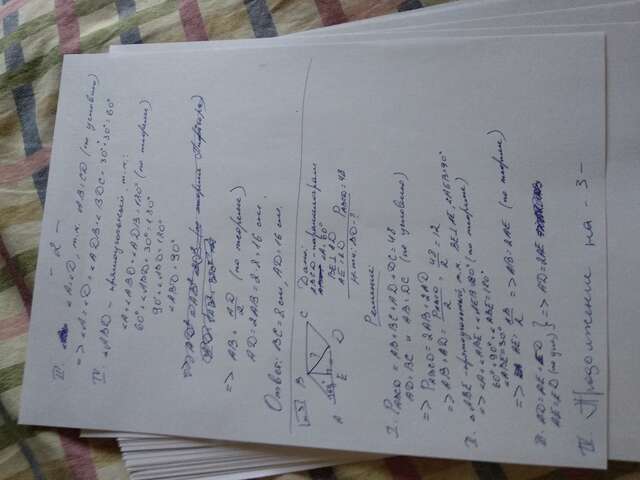 - 2 -
III. ∠A=∠D, т.к. AB=CD (по условию)
=> ∠A=∠D=∠ADB+∠BDC=30°+30°=60°
IV. △ABD - прямоугольный, т.к.:
∠A+∠ABD+∠ADB=180° (по теореме)
60°+∠ABD+30°=180°
90°+∠ABD=180°
∠ABD=90°
=> AB=AD/2 (по теореме)
AD=2AB=2·8=16 см.
Ответ: BC=8 см, AD=16 см.
№5
B C
?
A 60° E D
Дано:
ABCD - параллелограм
∠A=60°
BE⊥AD
AE=ED P ABCD=48
Н-ти: BD-?
Решение:
I. P ABCD = AB+BC+AD+DC=48
AD=BC и AB=DC (по условию)
=> P ABCD=2AB+2AD
=> AB+AD= P ABCD/2 = 48/2 = 12
II. △ABE - прямоугольный, т.к. BE⊥AE, ∠AEB=90°
=> ∠A+∠ABE+∠AEB=180° (по теореме)
60°+90°+∠ABE=180°
∠ABE=30°
=> AE=AB/2 => AB=2AE (по теореме)
III. AD=AE+ED
AE=ED (по усл) } => AD=2AE
IV. Продолжение на - 3 -